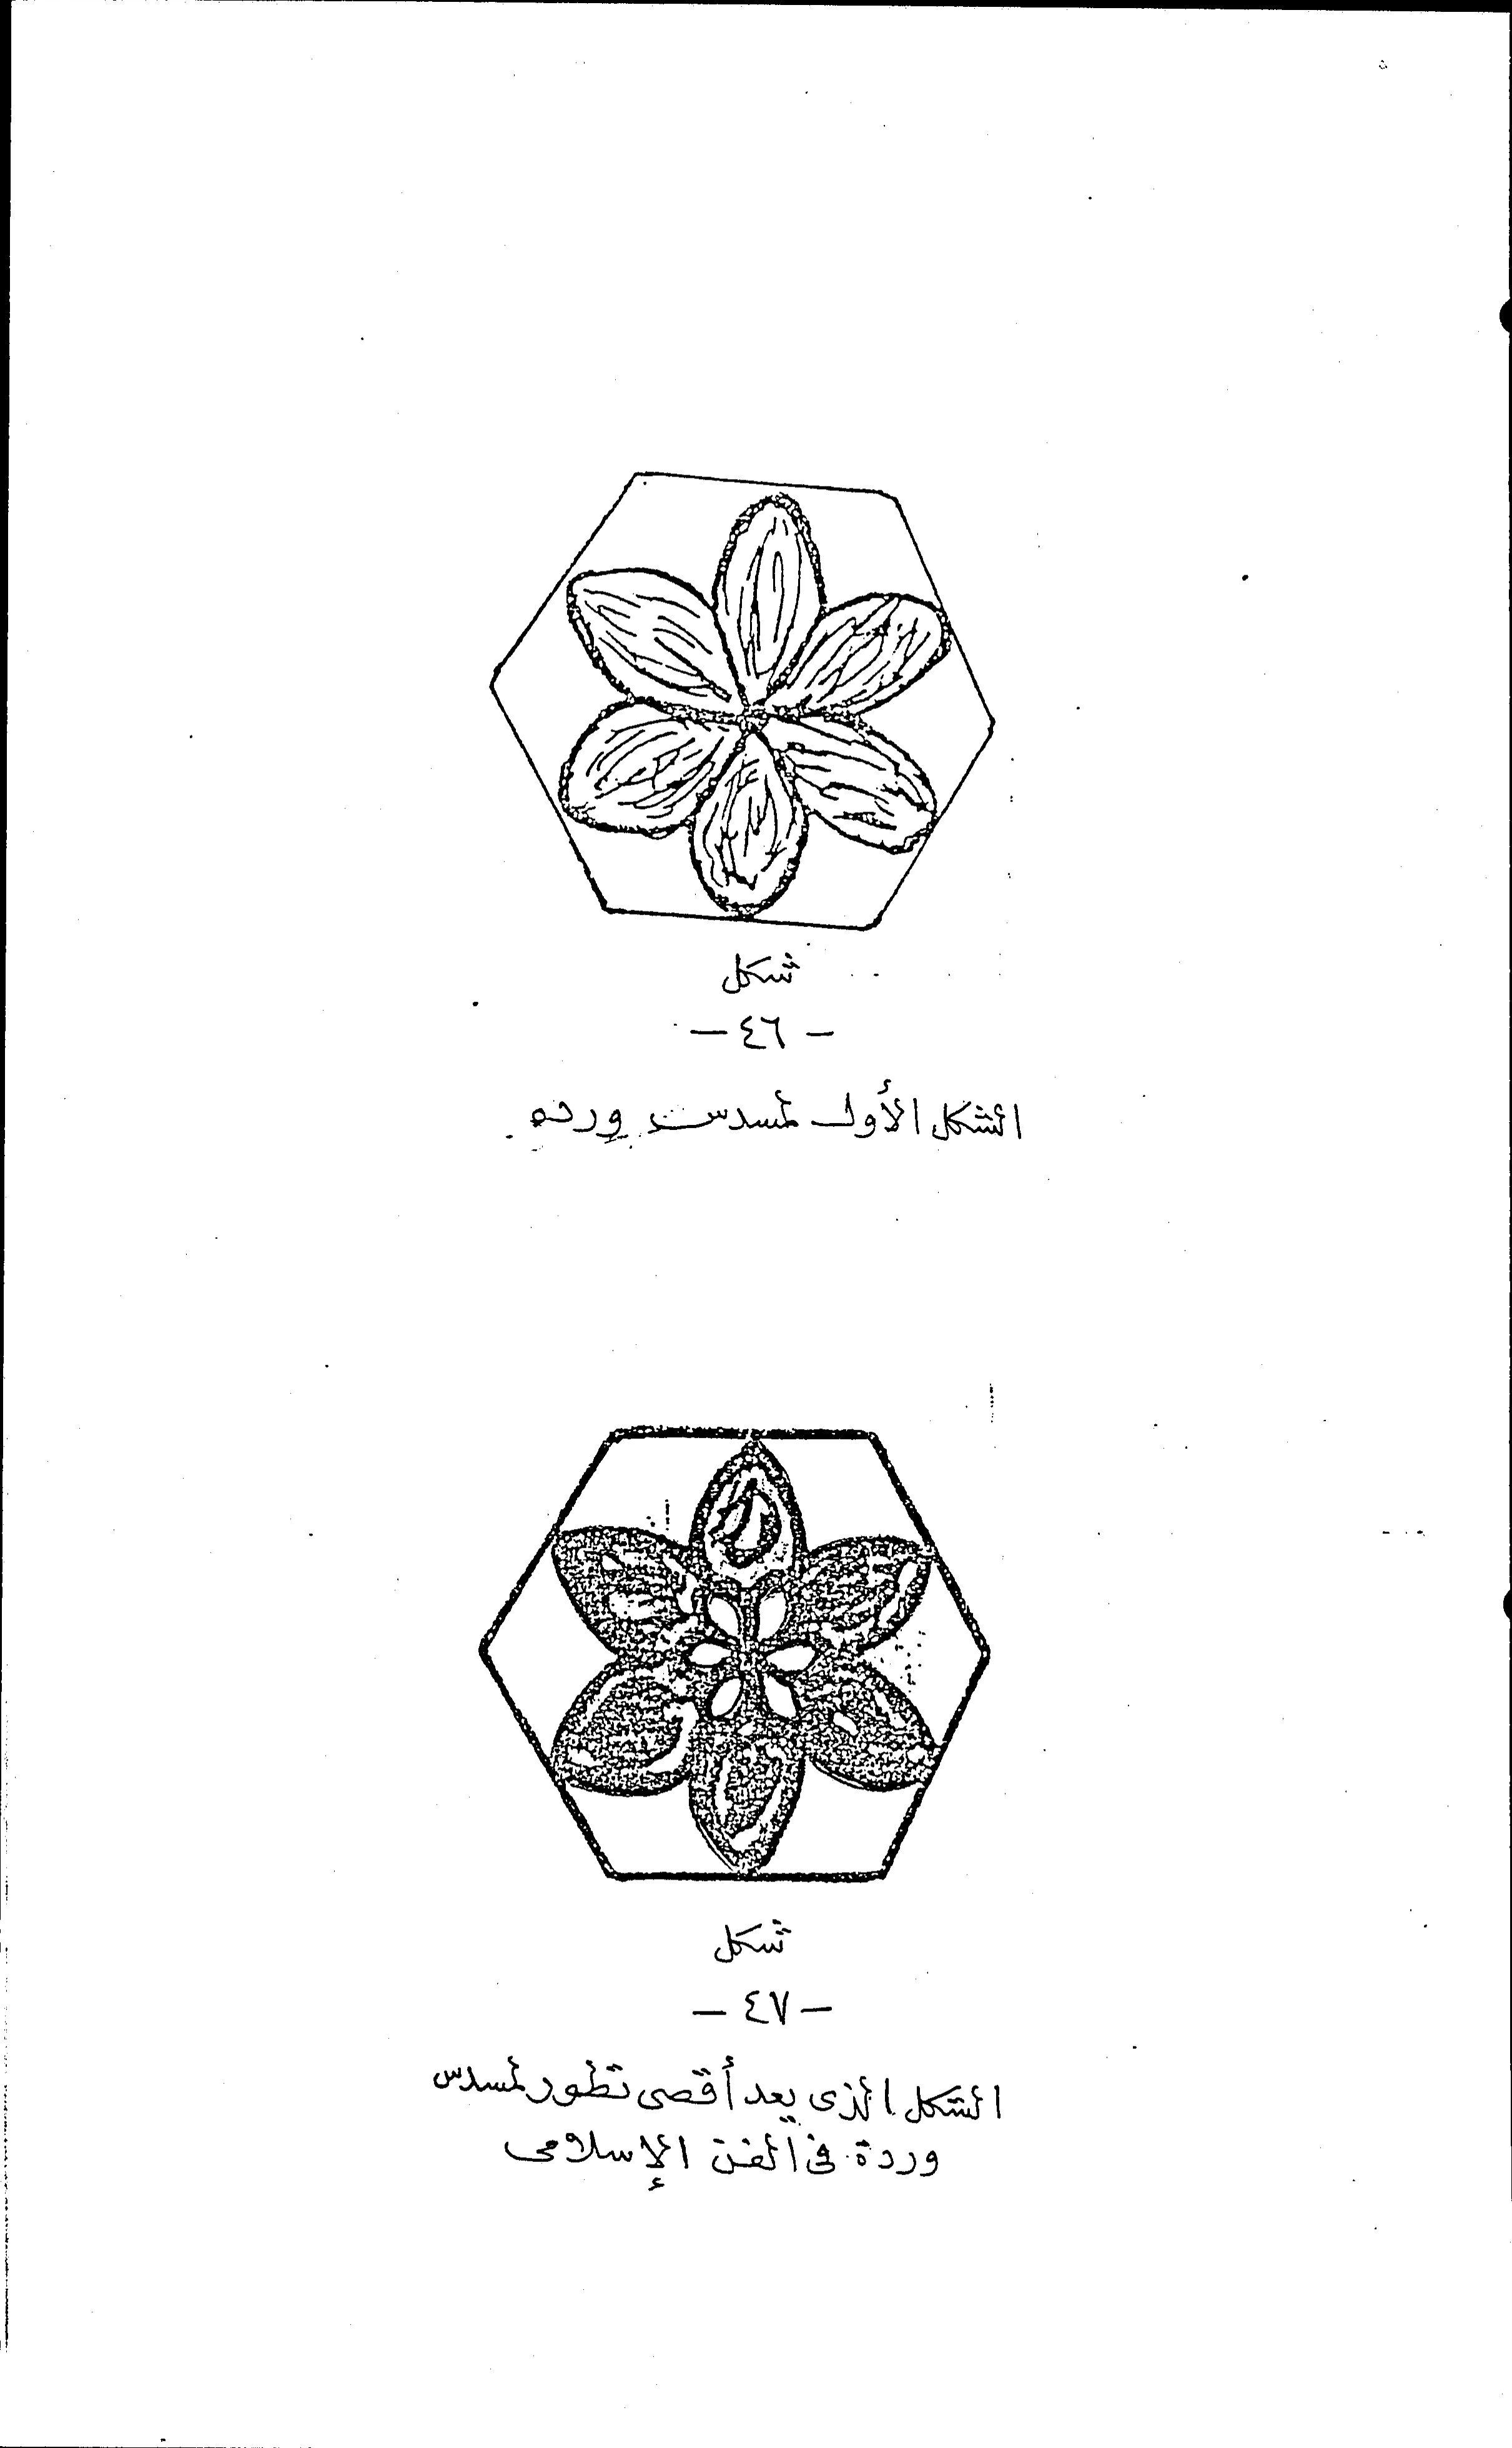 شكل
- ٤٦ -
الشكل الأول لمسدس ورده
شكل
- ٤٧ -
الشكل الذى يعد أقصى تطور لمسدس
وردة فى الفن الإسلامى